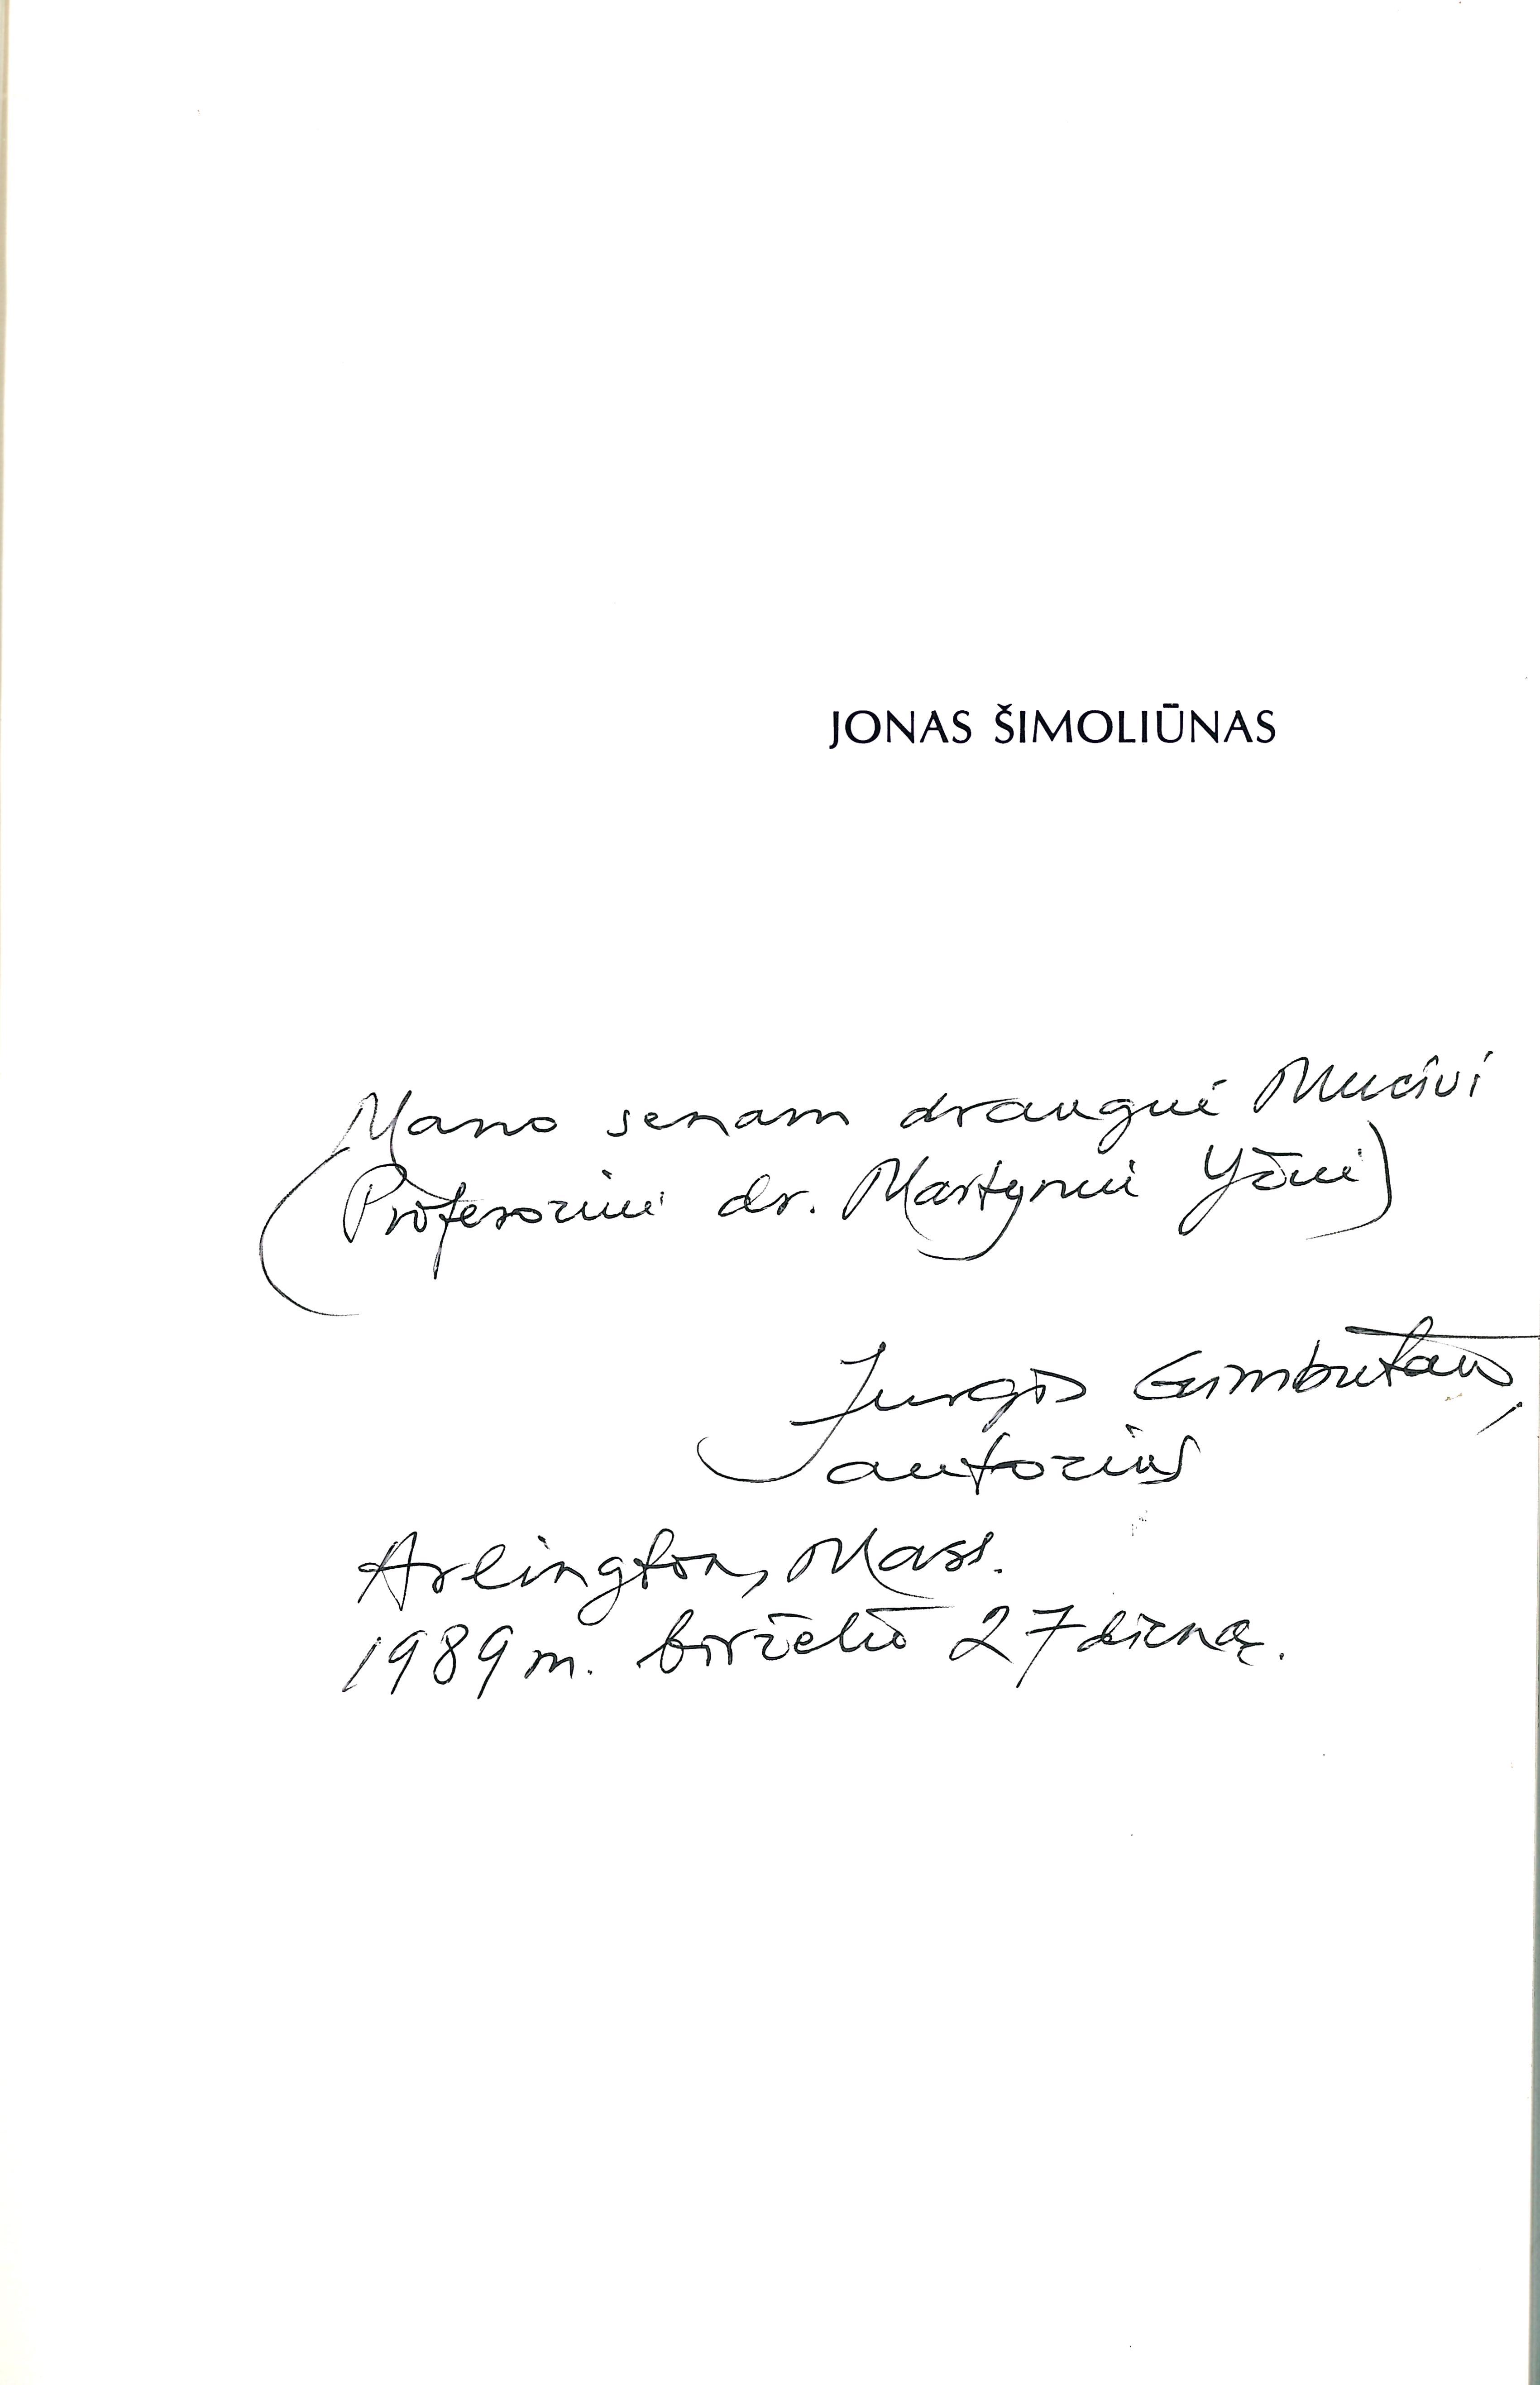 JONAS ŠIMOLIŪNAS
Mano senam draugui Mucivi
(Profesoriui dr. Martynui Yčui)
Jurgis Gimbutas,
autorius
Arlington, Mass.
1989 m. birželio 27 dieną.